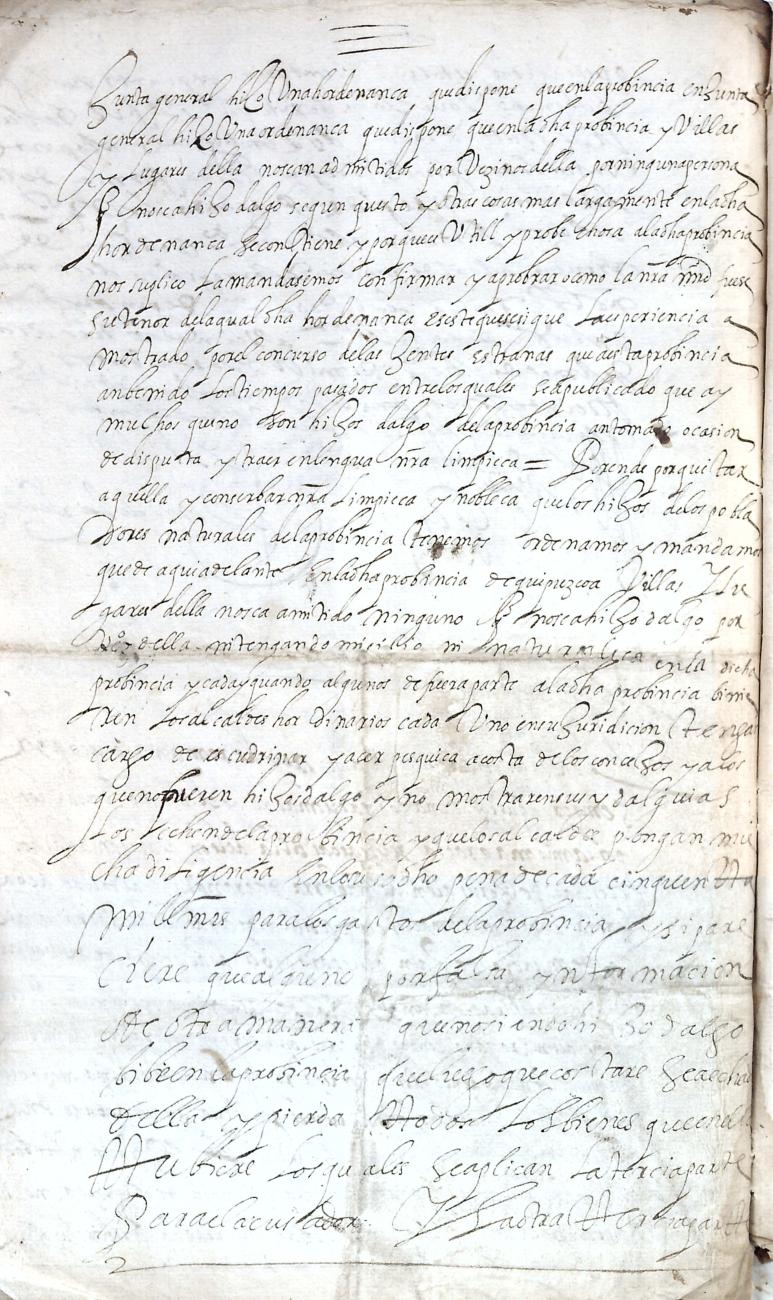 Junta general hiço Una hordenança que dispone que en la probincia en Junta
general hiço Una ordenança que dispone que en la dha probincia y Villas
y lugares della no sean admitidos por Vezinos della por ninguna persona
q no sea hijo dalgo segun questo y otras cosas mas largamente en la dha
hordenança se contiene y por que es Utill y probechosa a la dha probincia
nos suplico la mandasemos confirmar y aprobrar o como la nra mrd fuese
su tenor de la qual dha hordenança es este que se sigue La esperiencia a
mostrado por el concurso de las Jentes estranas que a esta probincia
an benido los tiempos pasados entre los quales se a publicado que ay
muchos que no son hijos dalgo de la probincia an tomado ocasion
de disputa y traer en lengua nra limpieça = Por ende por quitar
aquella y conserbar nra limpieça y nobleça que los hijos de los pobla
dores naturales de la probincia tenemos ordenamos y mandamos
que de aqui adelante En la dha probincia de guipuzcoa Villas Y lu
gares della no sea amitido ninguno q no sea hijo dalgo por
Vzº della ni tenga domicillio ni naturaleça en la dicha
probincia y cada y quando algunos de fuera parte a la dha probincia binie
ren los alcaldes hordinarios cada Uno en su Juridicion tenga
cargo de escudrinar y acer pesquiça a costa de los concejos y a los
que no fueren hijosdalgo y no mostraren su ydalguia
Los echen de la probincia y que los alcaldes pongan mu
cha diligencia En lo suso dho pena de cada cinquentta
mill mrs para los gastos de la probincia y si pare
ciere que alguno por falsa ynformacion
o de otra manera que no siendo hijo dalgo
bibe en la probincia que luego que costare sea echa
della y pierda ttodos los bienes que en ella
ttubiere los quales se aplican la tercia parte
Para el acusador Y la otra ttercia partte